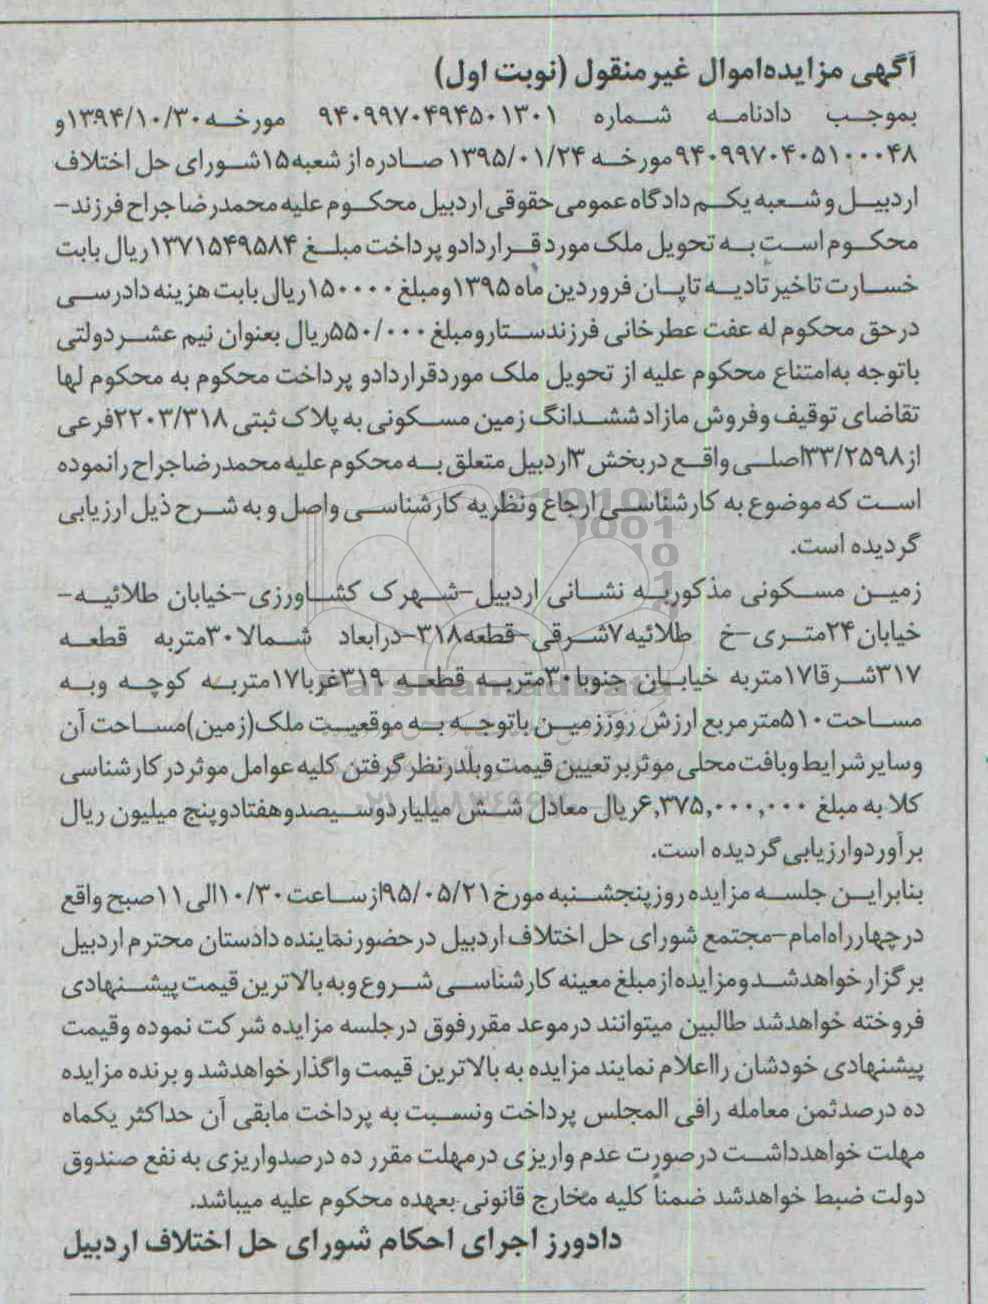 آگهی مزایده‌اموال غیرمنقول (نوبت اول)
بموجب دادنامه شماره ۹۴۰۹۹۷۰۴۹۴۵۰۱۳۰۱ مورخه ۱۳۹۴/۱۰/۳۰و
۹۴۰۹۹۷۰۴۰۵۱۰۰۰۴۸ مورخه ۱۳۹۵/۰۱/۲۴ صادره از شعبه ۱۵شورای حل اختلاف
اردبیل و شعبه یکم دادگاه عمومی حقوقی اردبیل محکوم علیه محمدرضا جراح فرزند-
محکوم است به تحویل ملک مورد قرارداد و پرداخت مبلغ ۱۳۷۱۵۴۹۵۸۴ریال بابت
خسارت تاخیر تادیه تاپان فروردین ماه ۱۳۹۵ومبلغ ۱۵۰۰۰۰ریال بابت هزینه دادرسی
درحق محکوم له عفت عطرخانی فرزندستارومبلغ ۵۵۰/۰۰۰ریال بعنوان نیم عشردولتی
باتوجه به‌امتناع محکوم علیه از تحویل ملک موردقراردادو پرداخت محکوم به محکوم لها
تقاضای توقیف وفروش مازاد ششدانگ زمین مسکونی به پلاک ثبتی ۲۲۰۳/۳۱۸فرعی
از۳۳/۲۵۹۸اصلی واقع دربخش ۳اردبیل متعلق به محکوم علیه محمدرضاجراح رانموده
است که موضوع به کارشناسی ارجاع ونظریه کارشناسی واصل و به شرح ذیل ارزیابی
گردیده است.
زمین مسکونی مذکوربه نشانی اردبیل-شهرک کشاورزی-خیابان طلائیه-
خیابان۲۴متری-خ طلائیه۷شرقی-قطعه۳۱۸-درابعاد شمالا۳۰متربه قطعه
۳۱۷شرقا۱۷متربه خیابان جنوبا۳۰متربه قطعه ۳۱۹غربا۱۷متربه کوچه وبه
مساحت۵۱۰مترمربع ارزش روززمین باتوجه به موقعیت ملک(زمین)مساحت آن
وسایرشرایط وبافت محلی موثربرتعیین قیمت وبلدرنظرگرفتن کلیه عوامل موثردرکارشناسی
کلا به مبلغ ۶,۳۷۵,۰۰۰,۰۰۰ریال معادل شش میلیاردوسیصدوهفتادوپنج میلیون ریال
برآوردوارزیابی گردیده است.
بنابراین جلسه مزایده روزپنجشنبه مورخ ۹۵/۰۵/۲۱ازساعت۱۰/۳۰الی۱۱صبح واقع
درچهارراه‌امام-مجتمع شورای حل اختلاف اردبیل درحضورنماینده دادستان محترم اردبیل
برگزارخواهدشدومزایده‌ازمبلغ معینه کارشناسی شروع وبه بالاترین قیمت پیشنهادی
فروخته خواهدشد طالبین میتوانند درموعد مقررفوق درجلسه مزایده شرکت نموده وقیمت
پیشنهادی خودشان رااعلام نمایند مزایده به بالاترین قیمت واگذارخواهدشد و برنده مزایده
ده درصدثمن معامله رافی المجلس پرداخت ونسبت به پرداخت مابقی آن حداکثر یکماه
مهلت خواهدداشت درصورت عدم واریزی درمهلت مقرر ده درصدواریزی به نفع صندوق
دولت ضبط خواهدشد ضمناً کلیه مخارج قانونی بعهده محکوم علیه میباشد.
دادورز اجرای احکام شورای حل اختلاف اردبیل